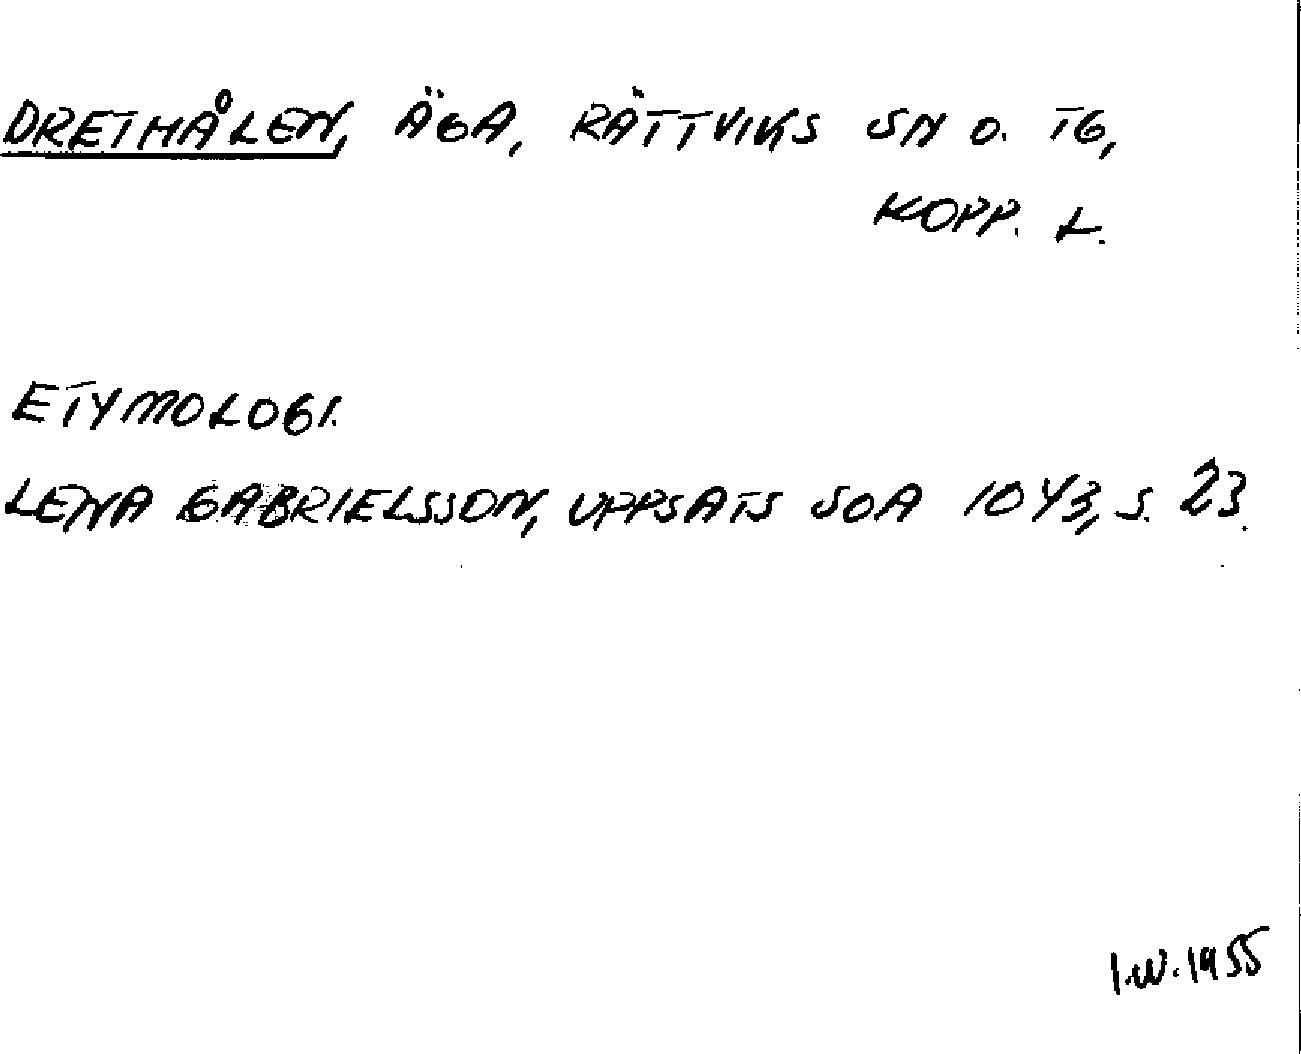 DRETHÅLEN, ÄGA, RÄTTVIKS SN O. TG,
KOPP. L.
ETYMOLOGI.
LENA GABRIELSSON, UPPSATS SOA 1043, S. 23.
I.W. 1955